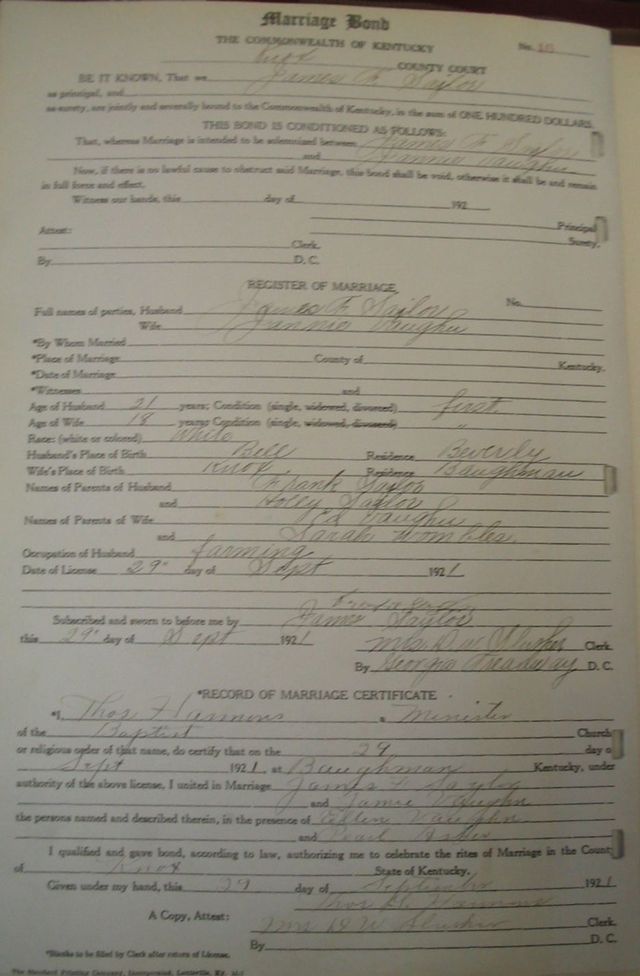 Marriage Bond
THE COMMONWEALTH OF KENTUCKY
No.
Knox COUNTY COURT
BE IT KNOWN, That we James F. Saylor
as principal, and
as surety, are jointly and severally bound to the Commonwealth of Kentucky, in the sum of ONE HUNDRED DOLLARS.
THIS BOND IS CONDITIONED AS FOLLOWS:
That, whereas Marriage is intended to be solemnized between James F. Saylor
and Jannie Vaughn
Now, if there is no lawful cause to obstruct said Marriage, this bond shall be void, otherwise it shall be and remain
in full force and effect.
Witness our hands, this day of 192
Principal
Attest: Surety.
Clerk.
By D. C.
REGISTER OF MARRIAGE
No.
Full names of parties, Husband James F. Sailor
Wife Jannie Vaughn
*By Whom Married
*Place of Marriage County of Kentucky.
*Date of Marriage
*Witnesses and
Age of Husband 21 years; Condition (single, widowed, divorced) first
Age of Wife 18 years; Condition (single, widowed, divorced) "
Race: (white or colored) White
Husband's Place of Birth Bell Residence Beverly
Wife's Place of Birth Knox Residence Baughman
Names of Parents of Husband Frank Saylor
and Holly Saylor
Names of Parents of Wife Ed Vaughn
and Sarah Wombles
Occupation of Husband farming
Date of License 29" day of Sept 1921
Subscribed and sworn to before me by James Saylor
this 29" day of Sept 1921 Mrs. D. W. Slusher Clerk.
By Georgia Treadway D. C.
*RECORD OF MARRIAGE CERTIFICATE
*I, Thos Hammons a Minister
of the Baptist Church
or religious order of that name, do certify that on the 29 day o
Sept 1921, at Baughman Kentucky, under
authority of the above license, I united in Marriage James F Saylor
and Jamie Vaughn
the persons named and described therein, in the presence of Ellen Vaughn
and Pearl
I qualified and gave bond, according to law, authorizing me to celebrate the rites of Marriage in the Count
of Knox State of Kentucky.
Given under my hand, this 29 day of September 1921
Thos Hammons
A Copy, Attest: Mrs D. W. Slusher Clerk.
By D. C.
*Blanks to be filled by Clerk after return of License.
The Standard Printing Company, Incorporated, Louisville, Ky.